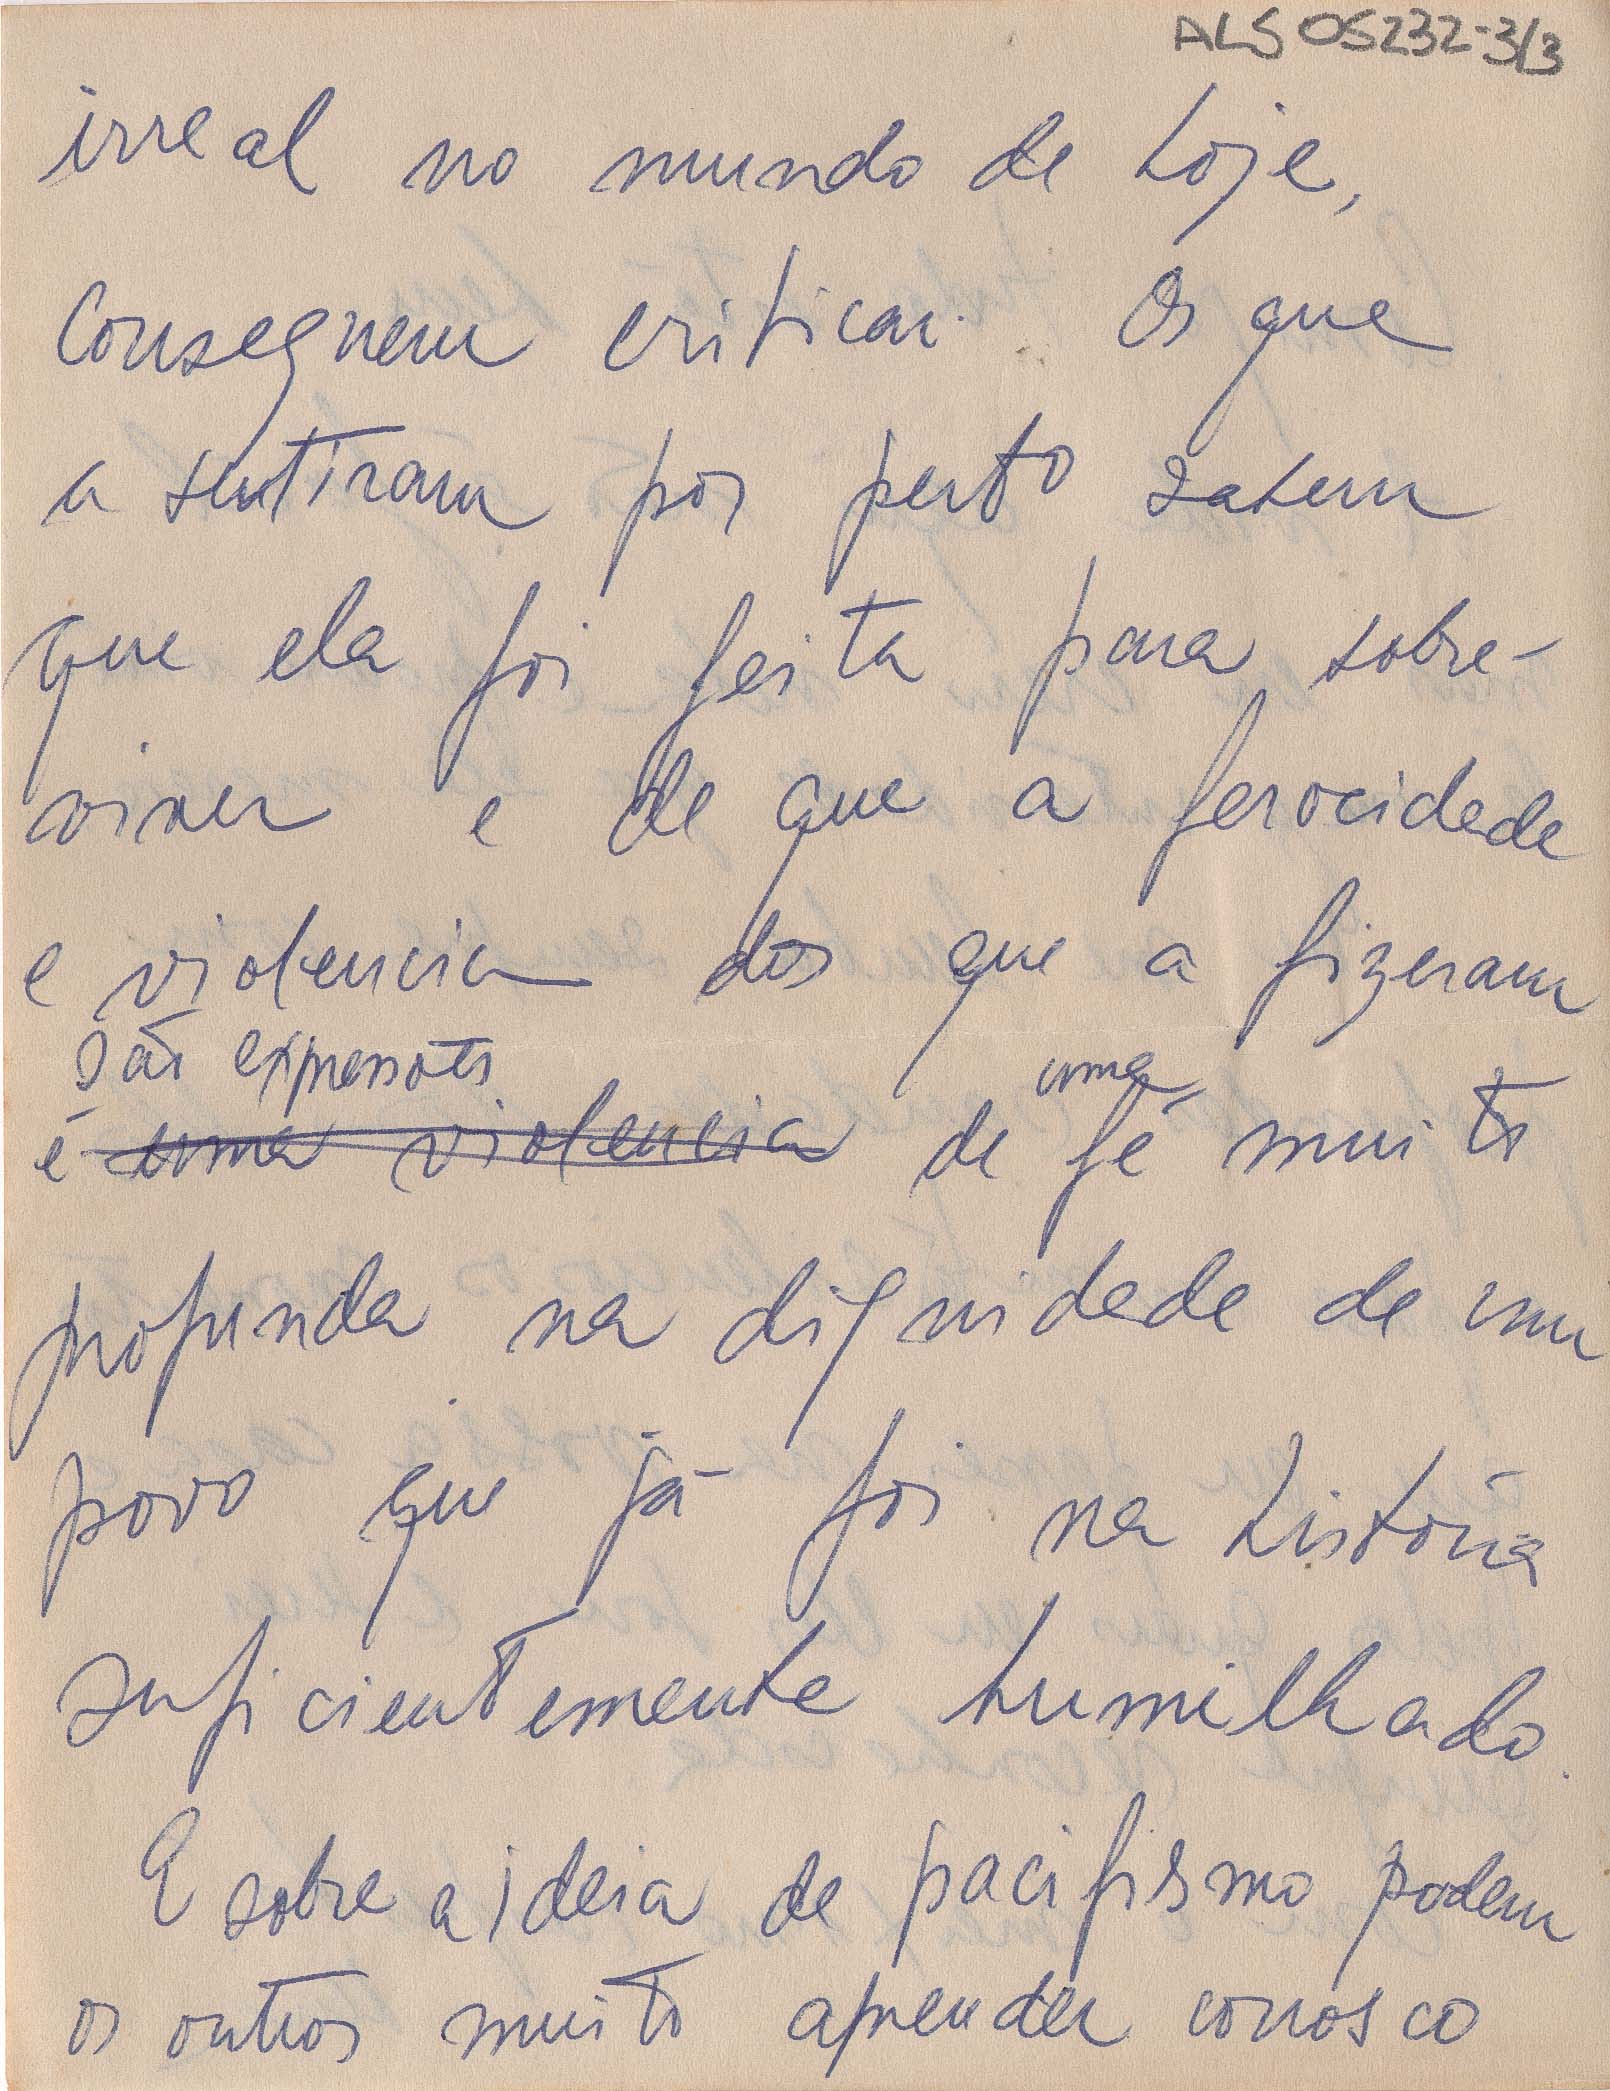 ALS 05232-3/3
irreal no mundo de hoje,
conseguem criticar. Os que
a sentiram por perto sabem
que ela foi feita para sobre-
viver e de que a ferocidade
e violencia dos que a fizeram
são expressões uma
é uma violencia de fé muito
profunda na dignidade de um
povo que já foi na história
suficientemente humilhado.
E sobre a ideia de pacifismo podem
os outros muito aprender conosco